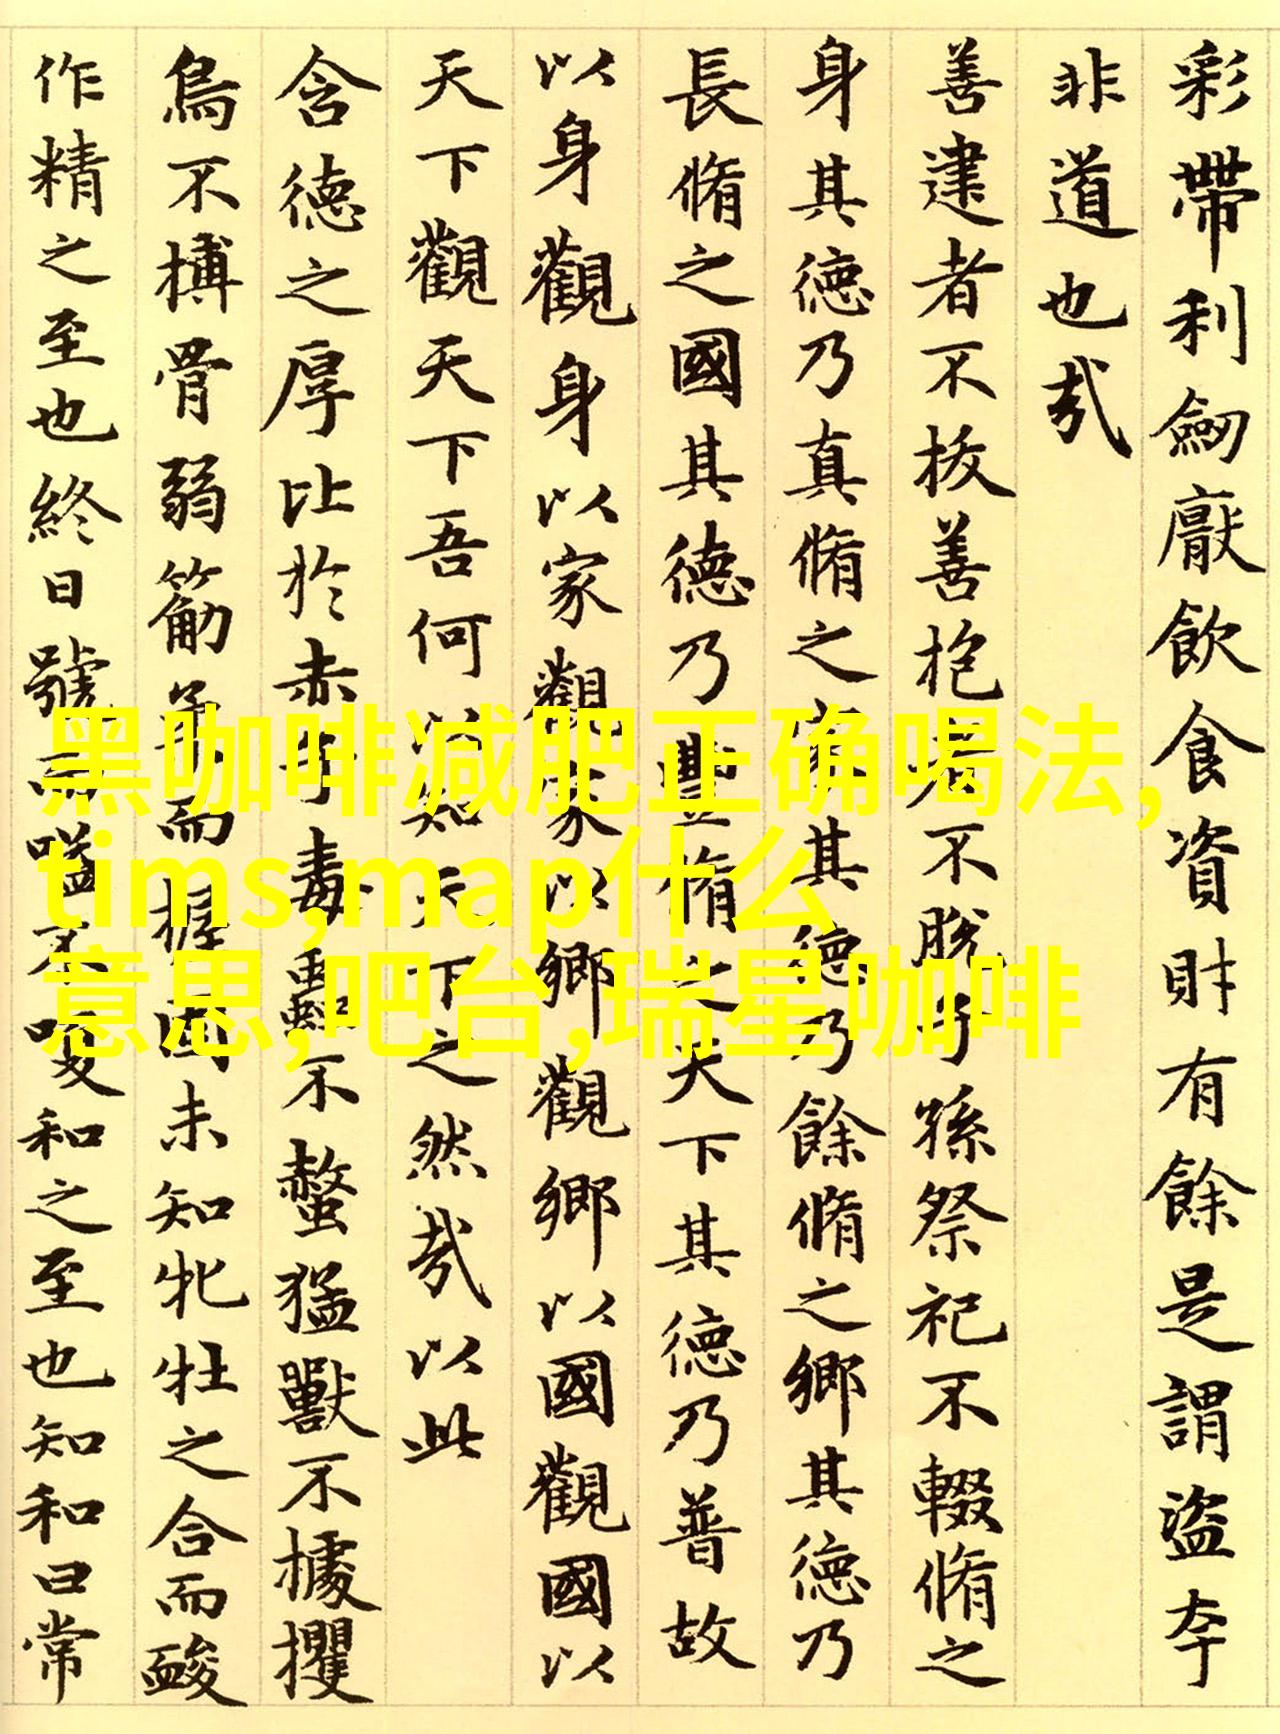 彩帶利劒厭飲食資財有餘是謂盜夸
非道也㢤
善建者不拔善抱者不脫子孫祭祀不輟脩之
身其德乃真脩之家其德乃餘脩之鄉其德乃
長脩之國其德乃豐脩之天下其德乃普故
以身觀身以家觀家以鄉觀鄉以國觀國以
天下觀天下吾何以知天下之然㢤以此
含德之厚比於赤子毒蟲不螫猛獸不據攫
鳥不搏骨弱筋柔而握固未知牝牡之合而酸
作精之至也終日號而嗌不嗄和之至也知和曰常
黑咖啡减肥正确喝法,
tims,map什么
意思,吧台,瑞星咖啡